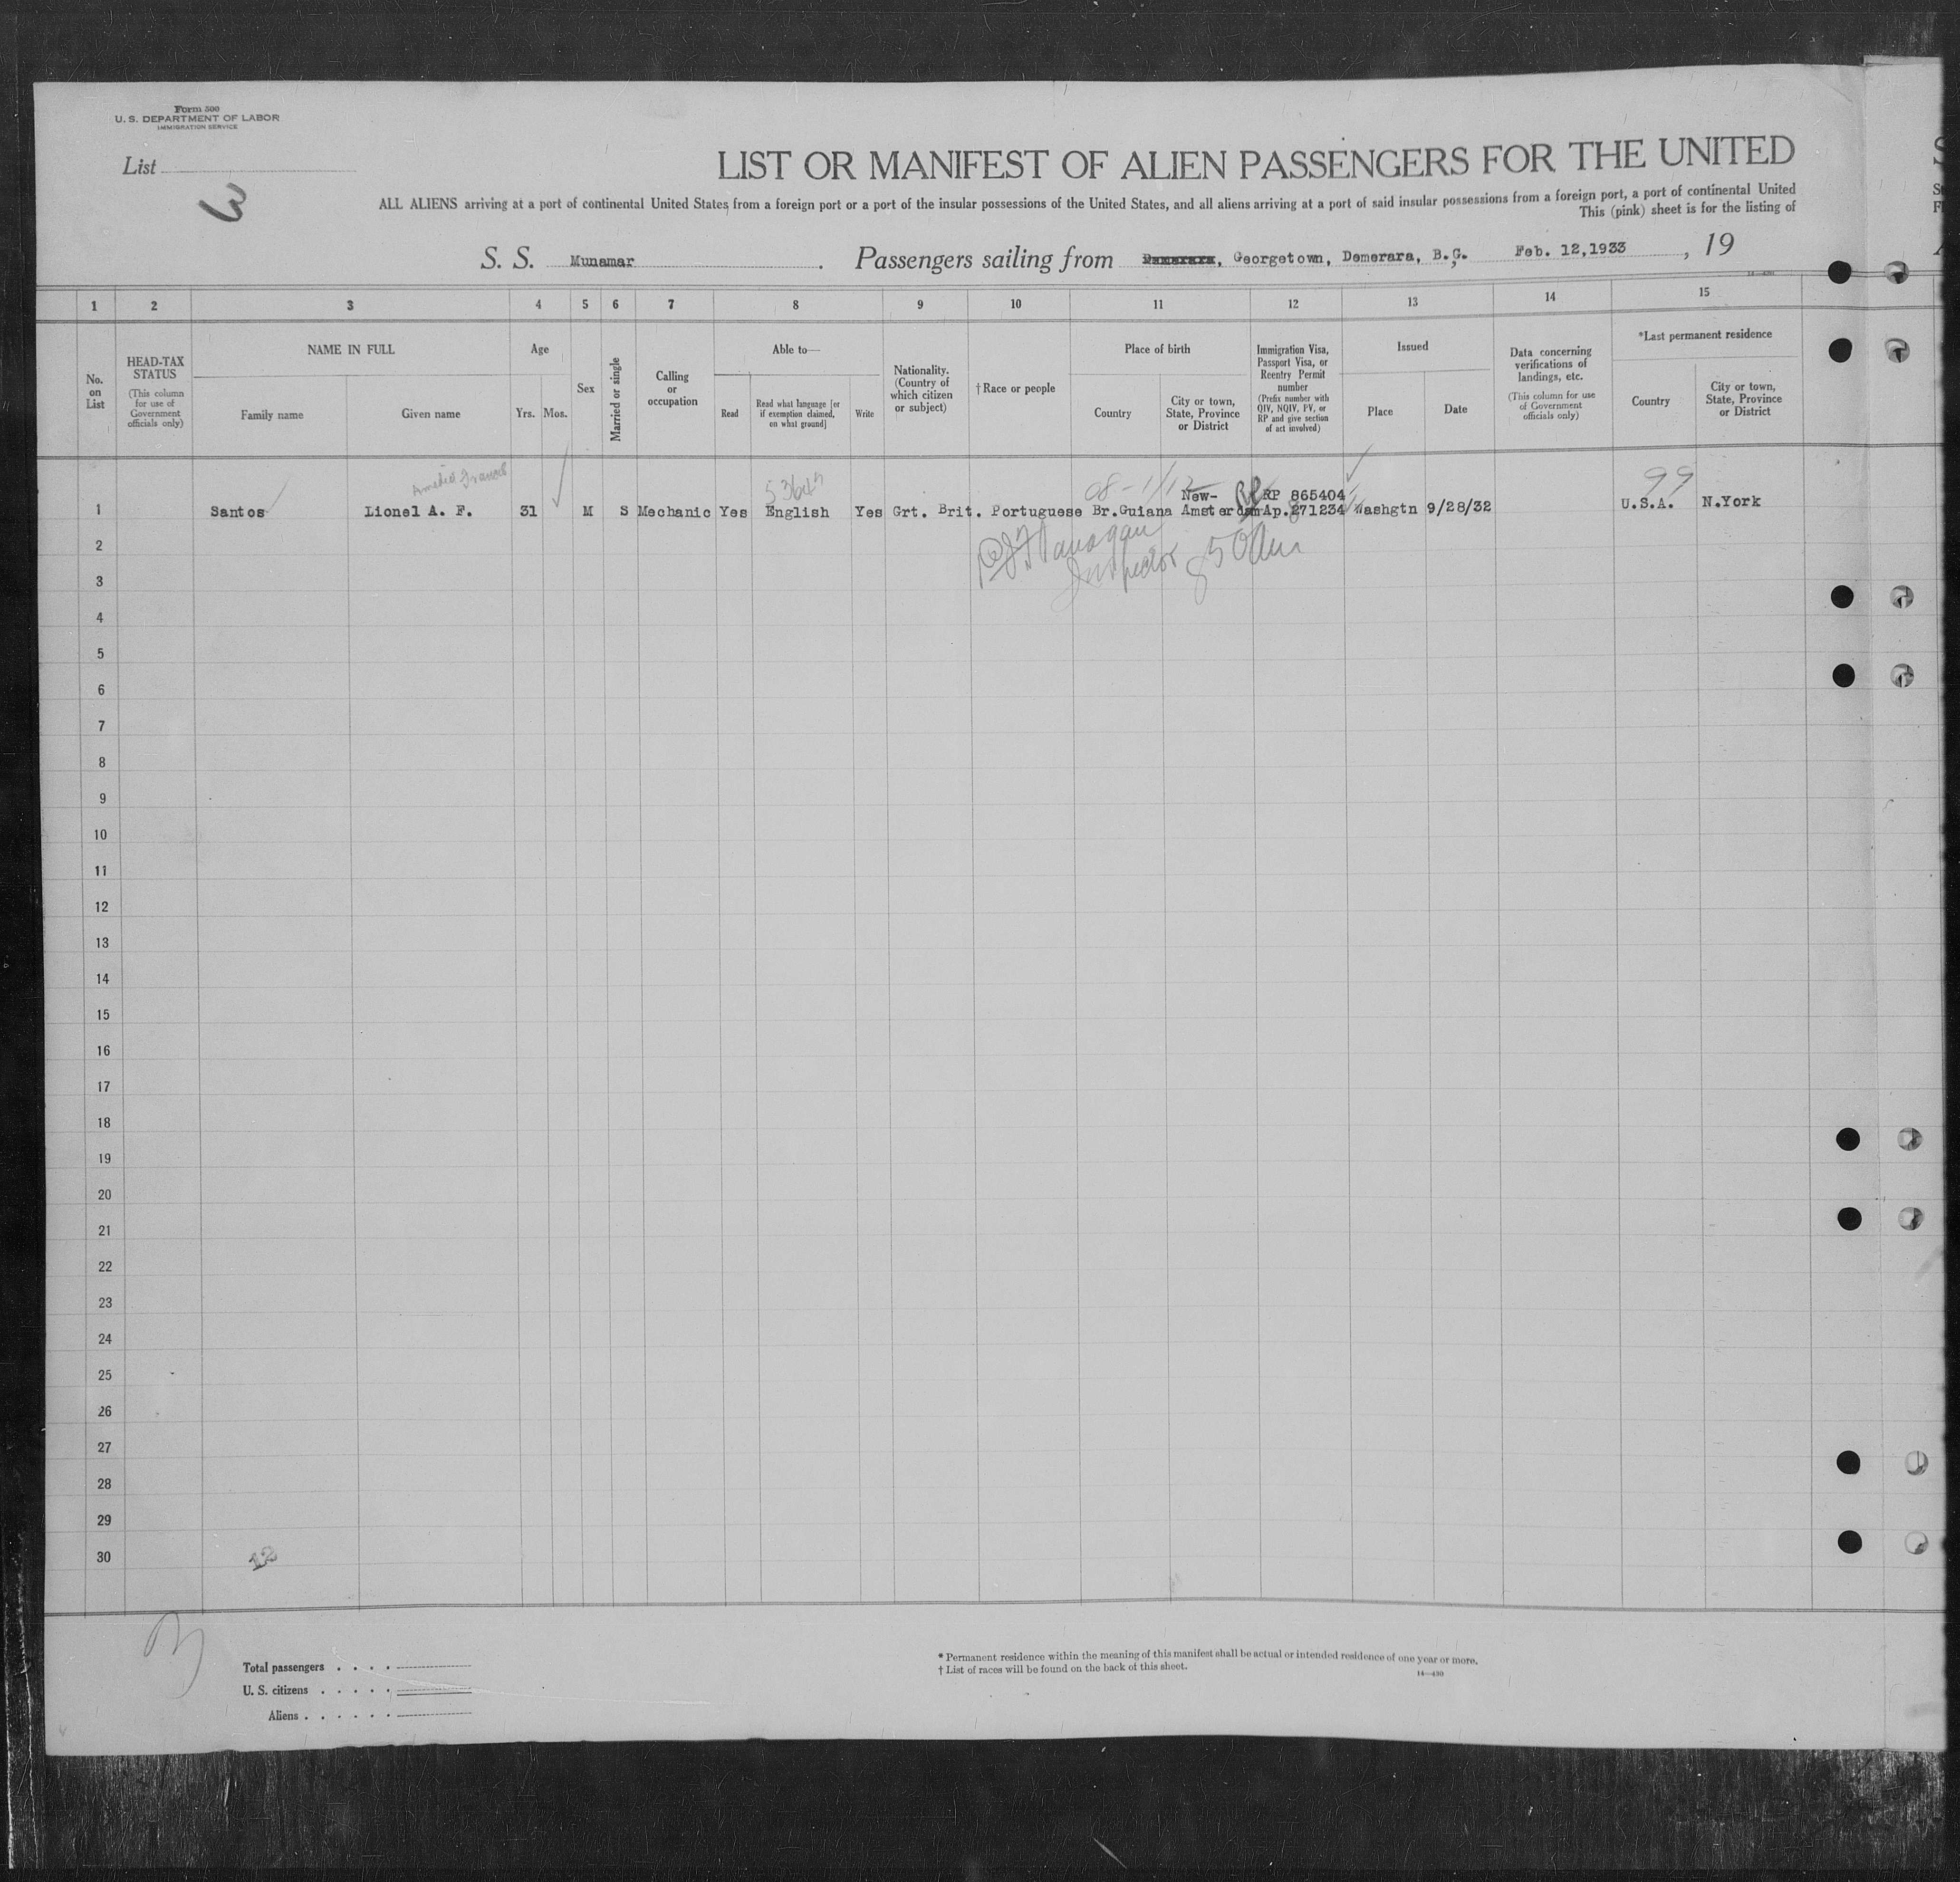 Form 500
U. S. DEPARTMENT OF LABOR
IMMIGRATION SERVICE
List
3
LIST OR MANIFEST OF ALIEN PASSENGERS FOR THE UNITED
ALL ALIENS arriving at a port of continental United States from a foreign port or a port of the insular possessions of the United States, and all aliens arriving at a port of said insular possessions from a foreign port, a port of continental United
This (pink) sheet is for the listing of
S. S. Munamar. Passengers sailing from , Georgetown, Demerara, B.G. Feb. 12,1933, 19
1 2 3 4 5 6 7 8 9 10 11 12 13 14 15
No. on List
HEAD-TAX STATUS
(This column for use of Government officials only)
NAME IN FULL
Family name
Given name
Age
Yrs.
Mos.
Sex
Married or single
Calling or occupation
Able to—
Read
Read what language [or if exemption claimed, on what ground]
Write
Nationality. (Country of which citizen or subject)
†Race or people
Place of birth
Country
City or town, State, Province or District
Immigration Visa, Passport Visa, or Reentry Permit number
(Prefix number with QIV, NQIV, PV, or RP and give section of act involved)
Issued
Place
Date
Data concerning verifications of landings, etc.
(This column for use of Government officials only)
*Last permanent residence
Country
City or town, State, Province or District
Francis
99
New- RP 865404
1 Santos Lionel A. F. 31 M S Mechanic Yes English Yes Grt. Brit. Portuguese Br.Guiana Amsterdam Ap.271234 Washgtn 9/28/32 U.S.A. N.York
Inspector
2
3
4
5
6
7
8
9
10
11
12
13
14
15
16
17
18
19
20
21
22
23
24
25
26
27
28
29
30
12
Total passengers . . . .
U. S. citizens . . . . .
Aliens . . . . . .
* Permanent residence within the meaning of this manifest shall be actual or intended residence of one year or more.
† List of races will be found on the back of this sheet.
14—430